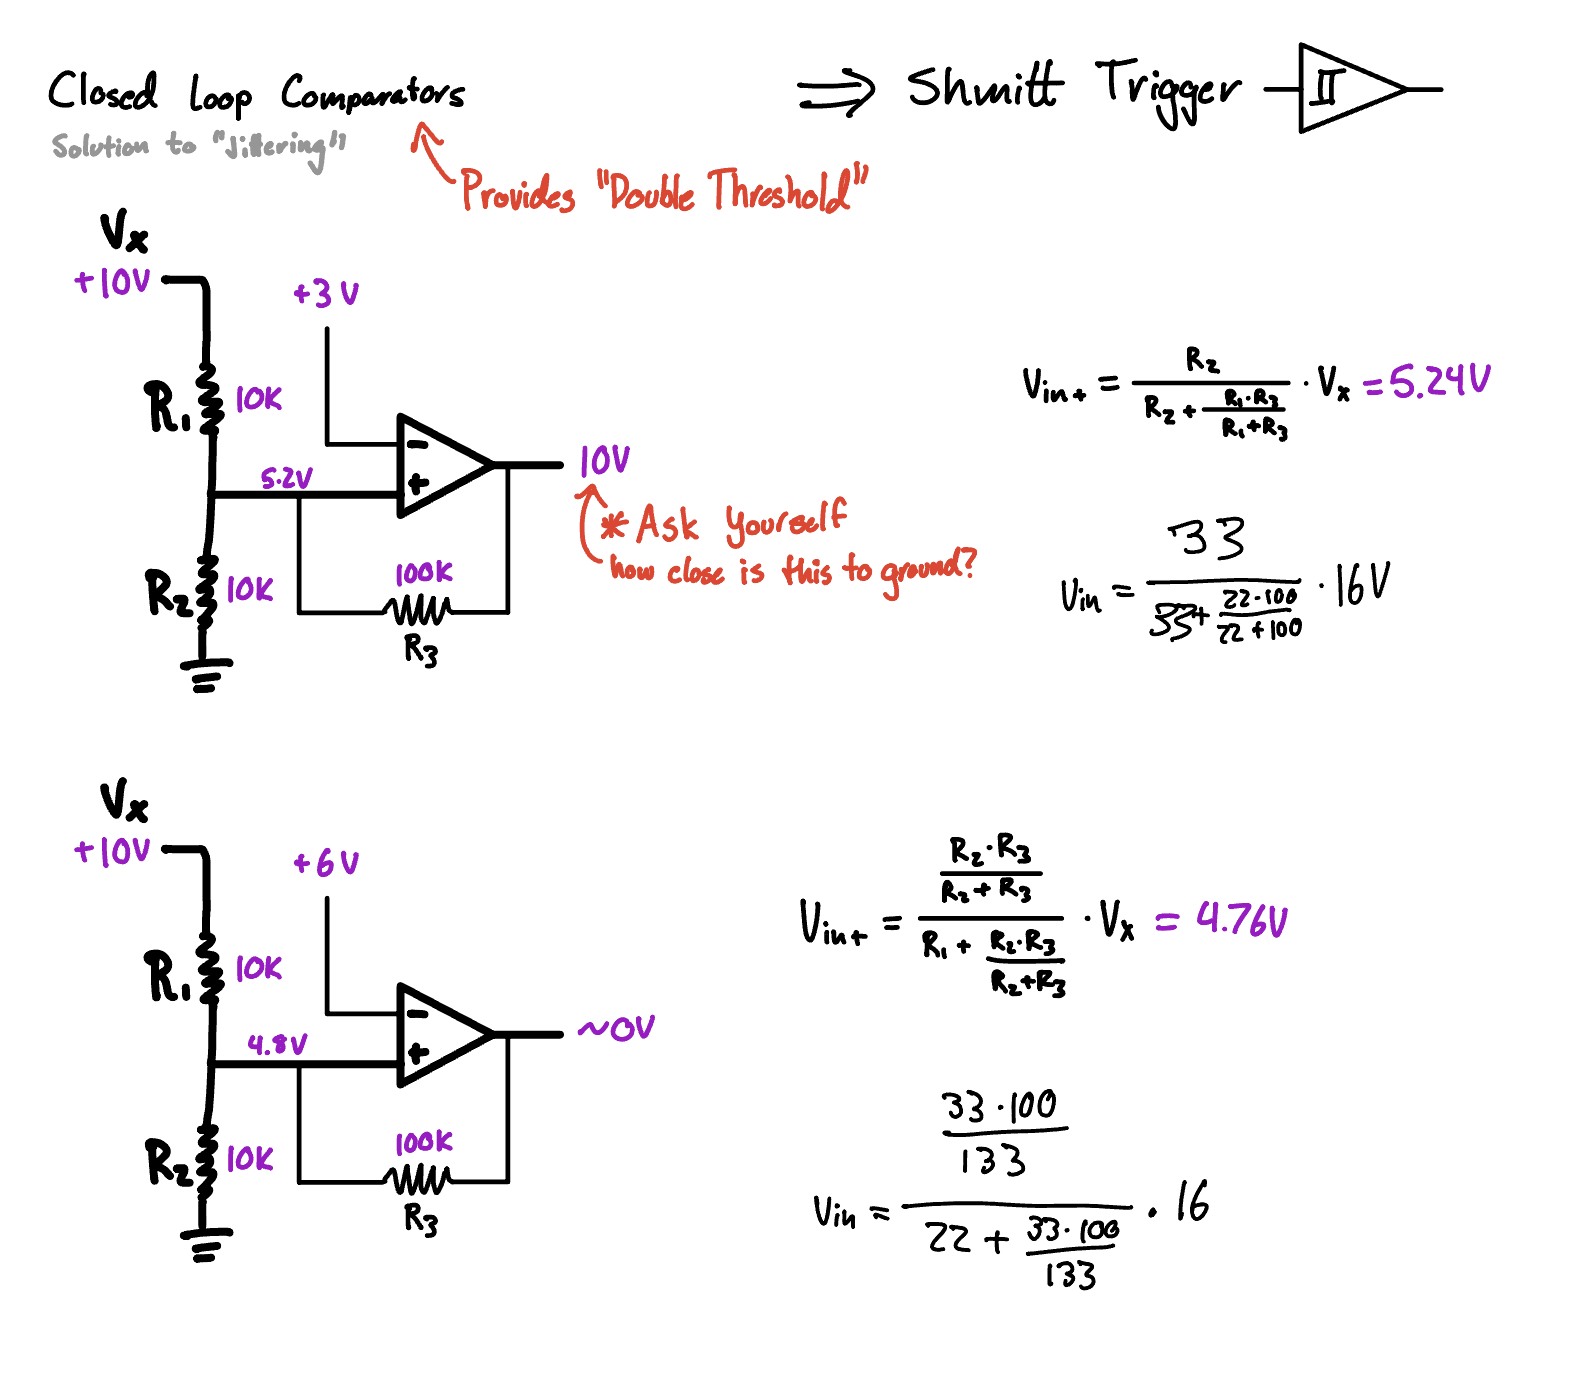 Closed Loop Comparators
⇒ Shmitt Trigger
Solution to "Jittering"
Provides "Double Threshold"
Vx
+10V
+3V
R1 10K
5.2V
-
+
10V
* Ask Yourself
how close is this to ground?
R2 10K
100K
R3
Vin+ = R2 / (R2 + (R1·R3)/(R1+R3)) · Vx = 5.24V
Vin = 33 / (33 + (22·100)/(22+100)) · 16V
Vx
+10V
+6V
R1 10K
4.8V
-
+
~0V
R2 10K
100K
R3
Vin+ = ((R2·R3)/(R2+R3)) / (R1 + (R2·R3)/(R2+R3)) · Vx = 4.76V
Vin = ((33·100)/133) / (22 + (33·100)/133) · 16